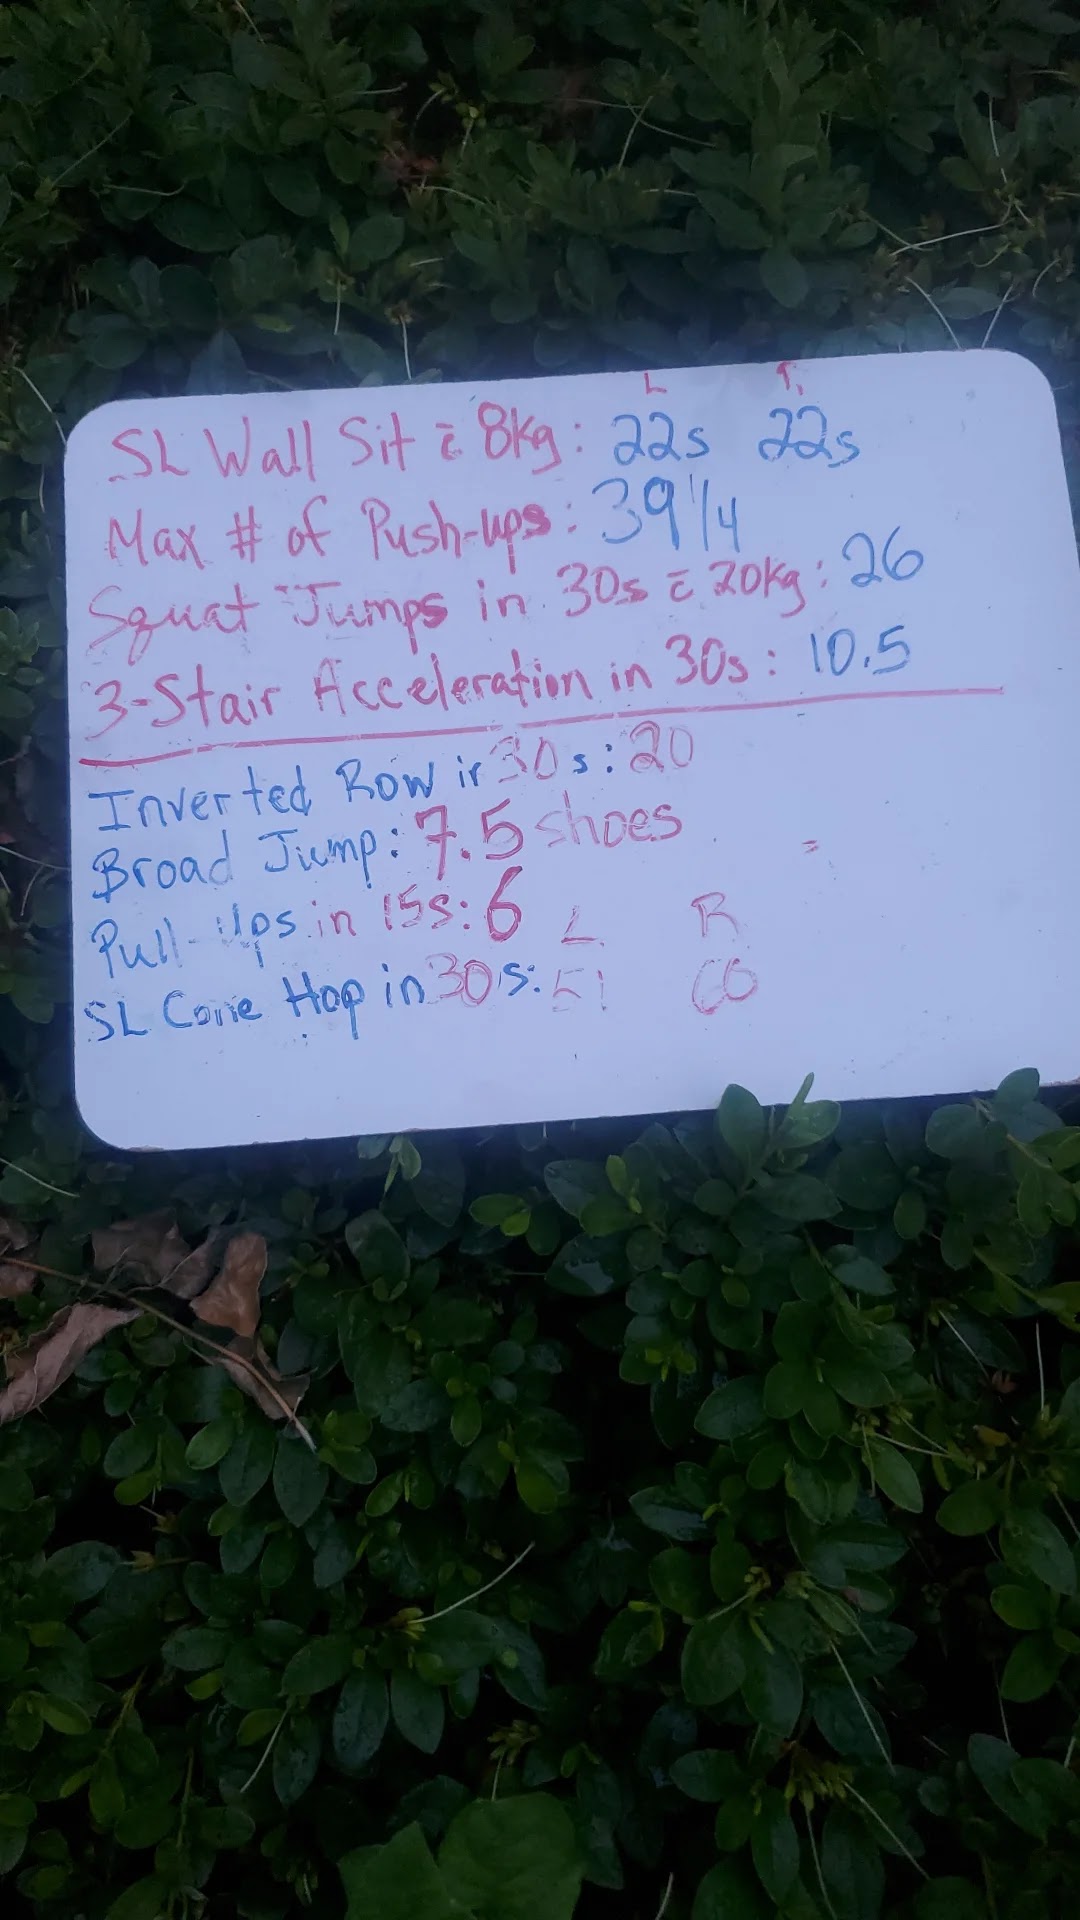 L
SL Wall Sit c̄ 8kg: 22s 22s
Max # of Push-ups: 39 1/4
Squat Jumps in 30s c̄ 20kg: 26
3-Stair Acceleration in 30s: 10.5
Inverted Row in 30s: 20
Broad Jump: 7.5 shoes
Pull-Ups in 15s: 6
L R
SL Cone Hop in 30s: